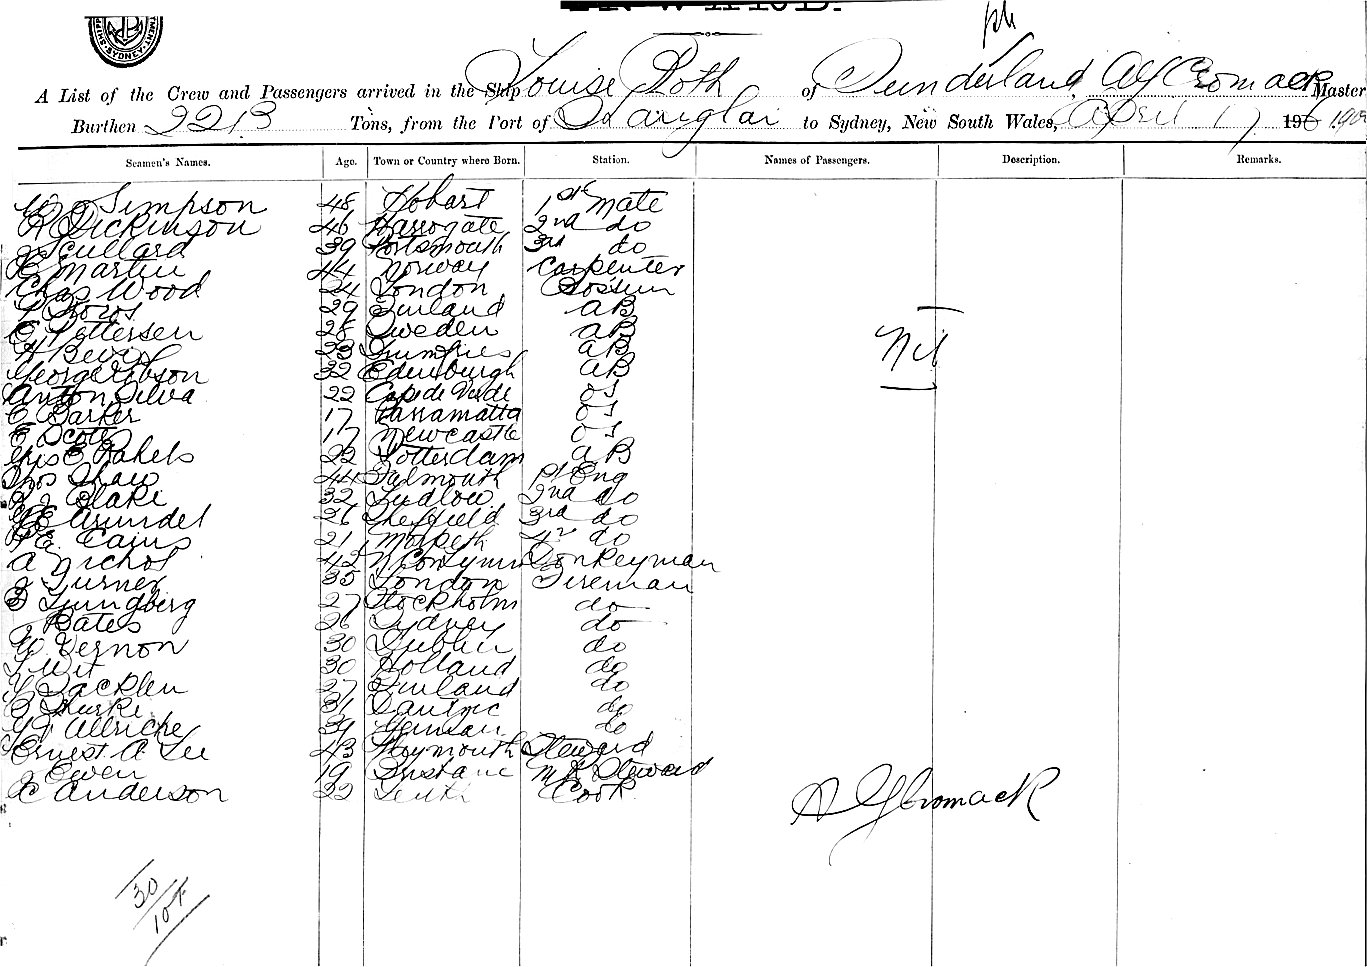 SHIPPING
SYDNEY
A List of the Crew and Passengers arrived in the Ship Louise Roth of Sunderland A Y Cromack Master
Burthen 2213 Tons, from the Port of to Sydney, New South Wales, April 17 190
Seamen's Names. Age. Town or Country where Born. Station. Names of Passengers. Description. Remarks.
Simpson 48 Hobart 1st Mate
R Dickinson 46 Harrogate 2nd do
J Scullard 39 Portsmouth 3rd do
Martin 44 Norway Carpenter
Chas Wood 24 London Bosun
29 Finland AB
Pettersen 28 Sweden AB
23 Dumfries AB
George Gibson 32 Edinburgh AB
Nil
Anton Silva 22 Cape de Verde OS
E Barker 17 Parramatta OS
E Scott 17 Newcastle OS
22 Rotterdam AB
Thos Shaw 44 Falmouth 1st Eng
Blake 32 Ludlow 2nd do
Arundel 26 Sheffield 3rd do
Cains 21 Morpeth 4th do
A Nichol 42 Donkeyman
J Turner 35 London Fireman
Ljungberg 27 Stockholm do
Bates 26 Sydney do
W Vernon 30 Dublin do
30 Holland do
27 Finland do
31 do
39 German do
Ernest A Lee 43 Steward
Owen 19 Brisbane M R Steward
Anderson 32 Leith Cook
A Y Cromack
30